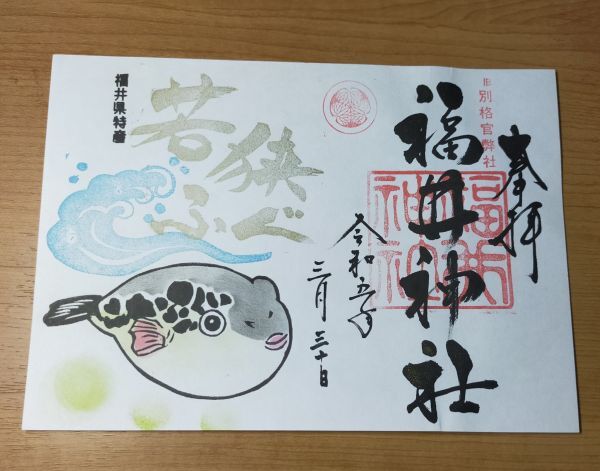 奉拝
旧別格官弊社
福井神社
福井神社
令和五年
三月三十日
若狭
ふぐ
福井県特産